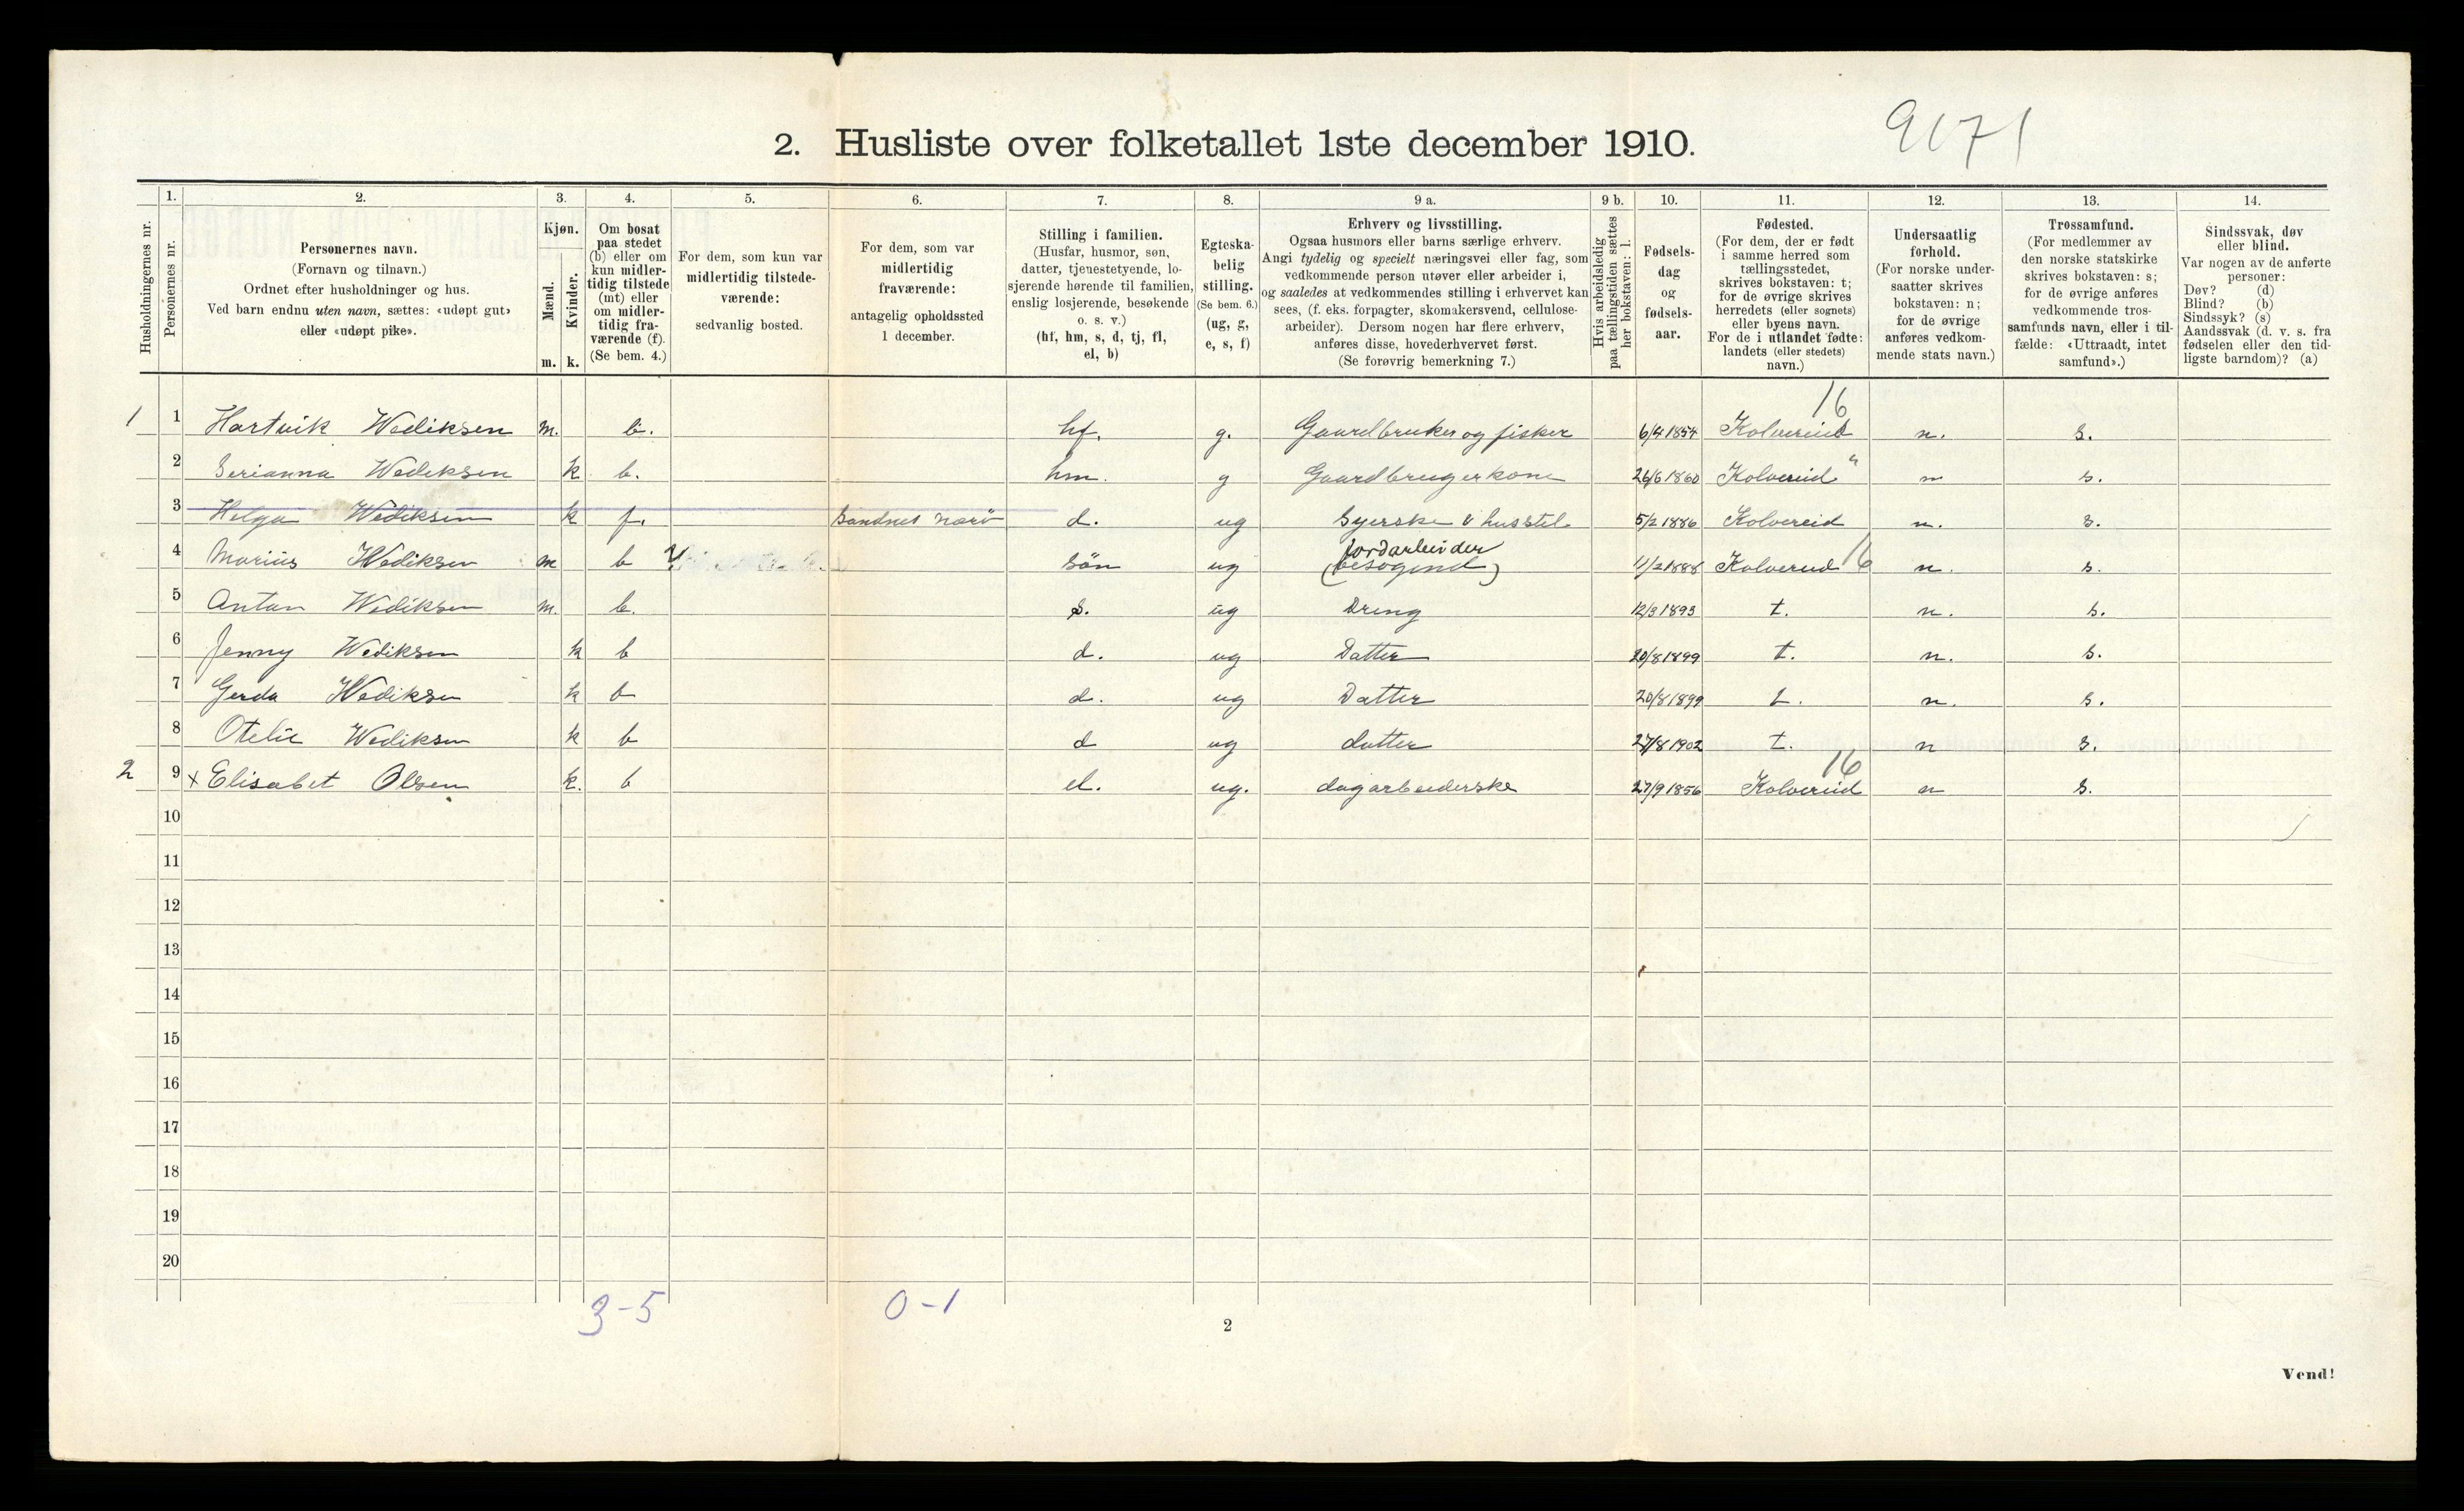 9171
2. Husliste over folketallet 1ste december 1910.
Husholdningernes nr.
1. Personernes nr.
2. Personernes navn. (Fornavn og tilnavn.) Ordnet efter husholdninger og hus. Ved barn endnu uten navn, sættes: «udøpt gut» eller «udøpt pike».
3. Kjøn. Mænd. m. Kvinder. k.
4. Om bosat paa stedet (b) eller om kun midlertidig tilstede (mt) eller om midlertidig fraværende (f). (Se bem. 4.)
5. For dem, som kun var midlertidig tilstedeværende: sedvanlig bosted.
6. For dem, som var midlertidig fraværende: antagelig opholdssted 1 december.
7. Stilling i familien. (Husfar, husmor, søn, datter, tjenestetyende, losjerende hørende til familien, enslig losjerende, besøkende o. s. v.) (hf, hm, s, d, tj, fl, el, b)
8. Egteskabelig stilling. (Se bem. 6.) (ug, g, e, s, f)
9 a. Erhverv og livsstilling. Ogsaa husmors eller barns særlige erhverv. Angi tydelig og specielt næringsvei eller fag, som vedkommende person utøver eller arbeider i, og saaledes at vedkommendes stilling i erhvervet kan sees, (f. eks. forpagter, skomakersvend, cellulosearbeider). Dersom nogen har flere erhverv, anføres disse, hovederhvervet først. (Se forøvrig bemerkning 7.)
9 b. Hvis arbeidsledig paa tællingstiden sættes her bokstaven: l.
10. Fødselsdag og fødselsaar.
11. Fødested. (For dem, der er født i samme herred som tællingsstedet, skrives bokstaven: t; for de øvrige skrives herredets (eller sognets) eller byens navn. For de i utlandet fødte: landets (eller stedets) navn.)
12. Undersaatlig forhold. (For norske undersaatter skrives bokstaven: n; for de øvrige anføres vedkommende stats navn.)
13. Trossamfund. (For medlemmer av den norske statskirke skrives bokstaven: s; for de øvrige anføres vedkommende trossamfunds navn, eller i tilfælde: «Uttraadt, intet samfund».)
14. Sindssvak, døv eller blind. Var nogen av de anførte personer: Døv? (d) Blind? (b) Sindssyk? (s) Aandssvak (d. v. s. fra fødselen eller den tidligste barndom)? (a)
1 1 Hartvik Wediksen m. b. hf. g. Gaardbruker og fisker 6/4 1854 Kolvereid 16 n. s.
2 Serianna Wediksen k b. hm. g Gaardbrugerkone 26/6 1860 Kolvereid " n s.
3 Helga Wediksen k f. Sandnes Nærö d. ug Syerske & husstel 5/2 1886 Kolvereid n. s.
4 Marius Wediksen m b sön ug jordarbeider (besøgend) 11/2 1888 Kolvereid 16 n. s.
5 Anton Wediksen m. b. s. ug Dreng 12/3 1893 t. n. s.
6 Jenny Wediksen k b d. ug Datter 20/8 1899 t. n. s.
7 Gerda Wediksen k b d. ug Datter 20/8 1899 t. n. s.
8 Otelie Wediksen k b d ug datter 27/8 1902 t. n s.
2 9 x Elisabet Olsen k. b el. ug. dagarbeiderske 27/9 1856 Kolvereid 16 n s.
10
11
12
13
14
15
16
17
18
19
20
3-5 0-1
2
Vend!